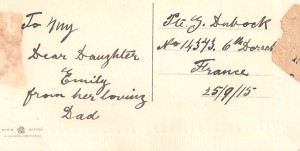 To My
Dear Daughter
Emily
from her loving
Dad
Pte. G. Dubock
No 14573. 6th Dorset
France
25/9/15